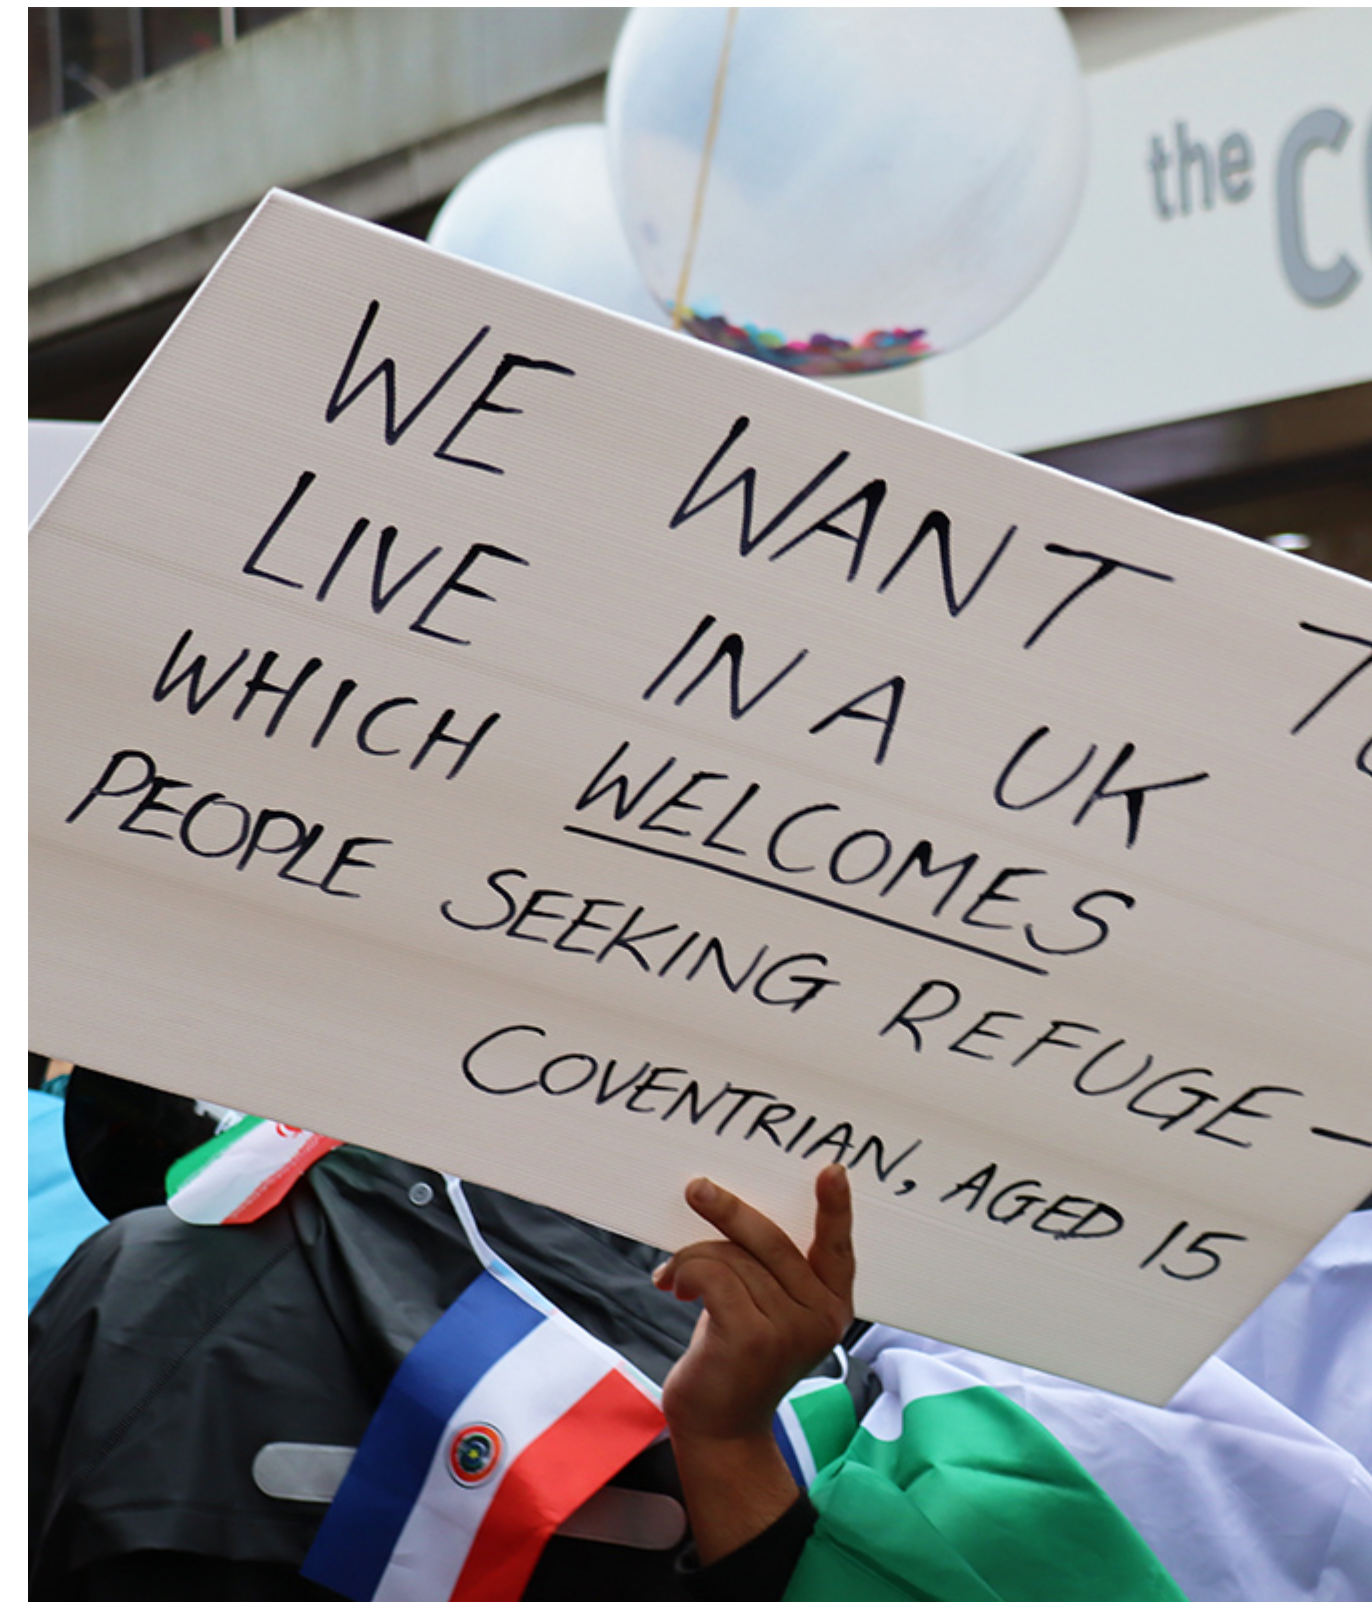 the
WE WANT TO
LIVE IN A UK
WHICH WELCOMES
PEOPLE SEEKING REFUGE -
COVENTRIAN, AGED 15